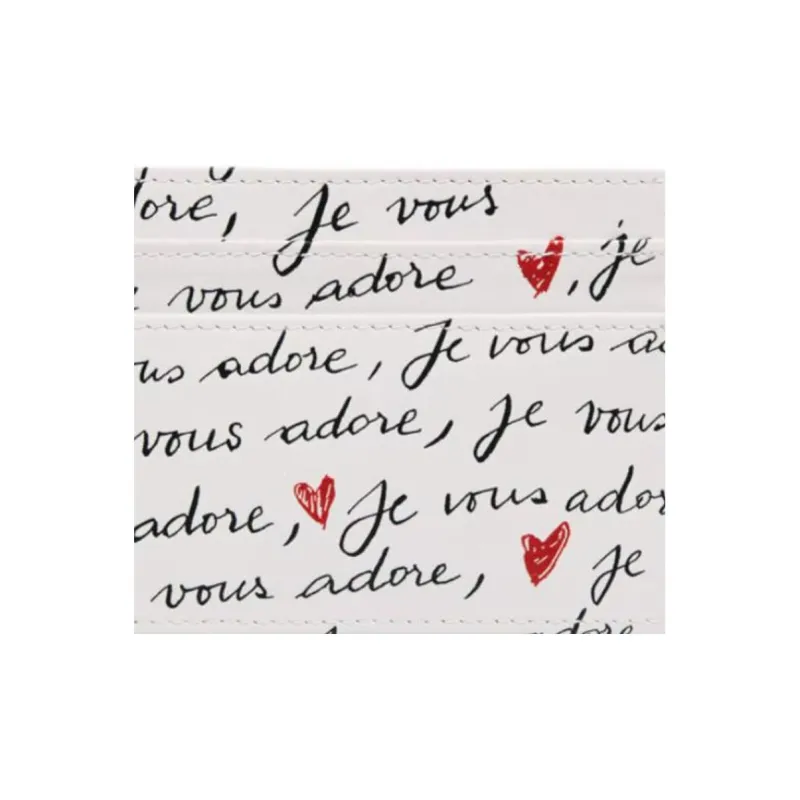 ore, Je vous
vous adore, je
us adore, Je vous a
vous adore, je vous
adore, Je vous ador
vous adore, je
adore